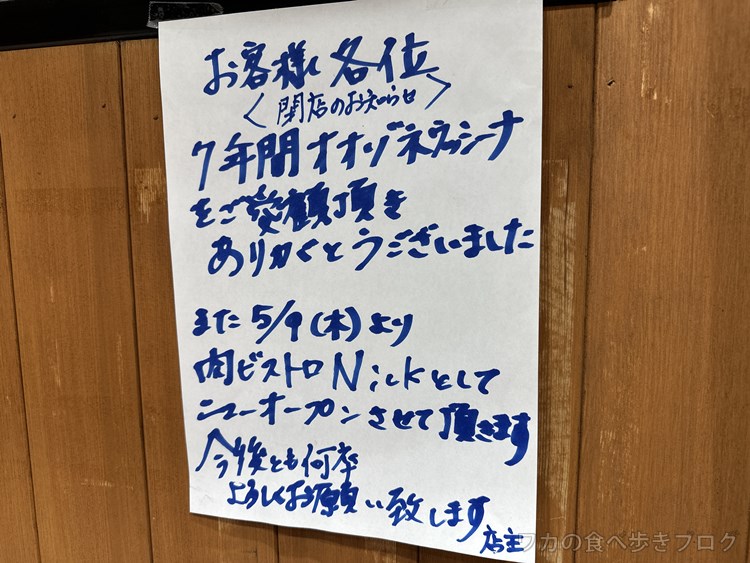 お客様各位
<閉店のお知らせ>
7年間オオゾネウッシーナ
をご愛顧頂き
ありがとうございました
また5/9(木)より
肉ビストロNickとして
ニューオープンさせて頂きます
今後とも何卒
よろしくお願い致します
店主
フカの食べ歩きブログ